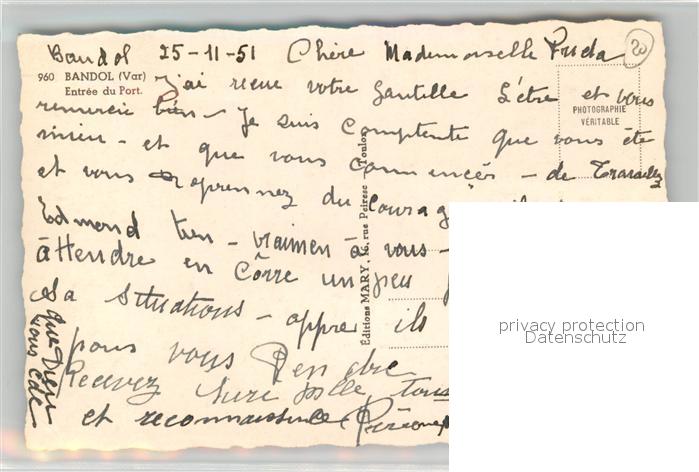 Bandol 25-11-51 Chère Mademoiselle
20
960 BANDOL (Var)
Entrée du Port.
j'ai reçue votre gentille Lêtre et vous
remercie bien - Je suis comptente que vous ête
mieu - et que vous commencés - de Travailez
et vous reprennez du courag
Edmond tien - vraimen à vous -
attendre en côrre un peu
Sa situations - appre ils
pous vous Pendre
Recevez tous
et reconnaissance
que Dieu
vous
PHOTOGRAPHIE
VÉRITABLE
Éditions MARY, rue Peiresc Toulon
privacy protection
Datenschutz